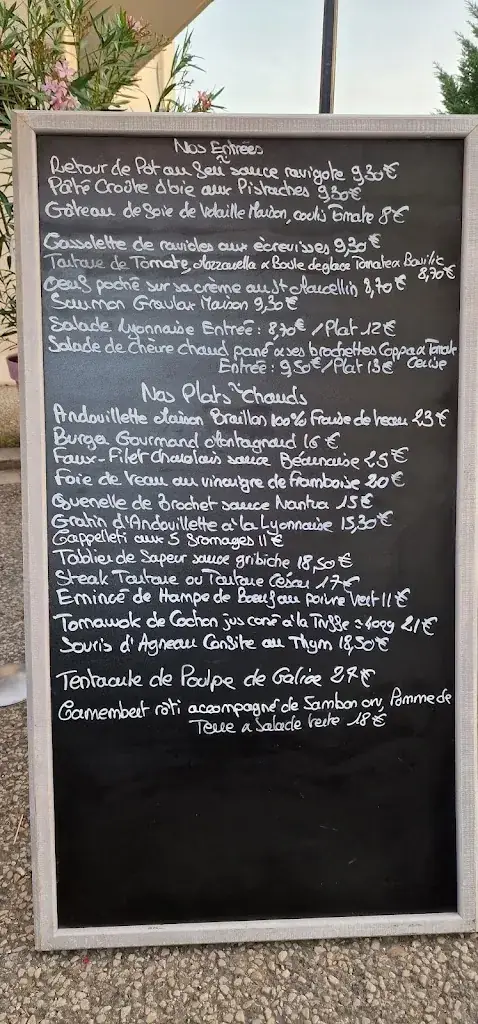 Nos Entrées
Retour de Pot au feu sauce ravigote 9,30€
Pâté Croûte d'oie aux Pistaches 9,30€
Gâteau de foie de Volaille Maison, coulis Tomate 8€
Cassolette de ravioles aux écrevisses 9,30€
Tartare de Tomate, Mozzarella & Boule de glace Tomate & Basilic
8,70€
Oeuf poché sur sa crème au St Marcellin 8,70€
Saumon Gravlax Maison 9,30€
Salade Lyonnaise Entrée : 8,70€ / Plat 12€
Salade de Chèvre chaud pané & ses brochettes Coppa & Tomate
Entrée : 9,50€ / Plat 13€ Cerise
Nos Plats Chauds
Andouillette Maison Braillon 100% Fraise de veau 23€
Burger Gourmand Montagnard 16€
Faux-Filet Charolais sauce Béarnaise 25€
Foie de Veau au vinaigre de framboise 20€
Quenelle de Brochet sauce Nantua 15€
Gratin d'Andouillette à la Lyonnaise 15,30€
Cappelleti aux 5 fromages 11€
Tablier de Sapeur sauce gribiche 18,50€
Steak Tartare ou Tartare César 17€
Emincé de Hampe de Boeuf au poivre Vert 11€
Tomawok de Cochon jus corsé à la Truffe 400g 21€
Souris d'Agneau Confite au Thym 18,50€
Tentacule de Poulpe de Galice 27€
Camembert rôti accompagné de Jambon cru, Pomme de
Terre & Salade Verte 18€